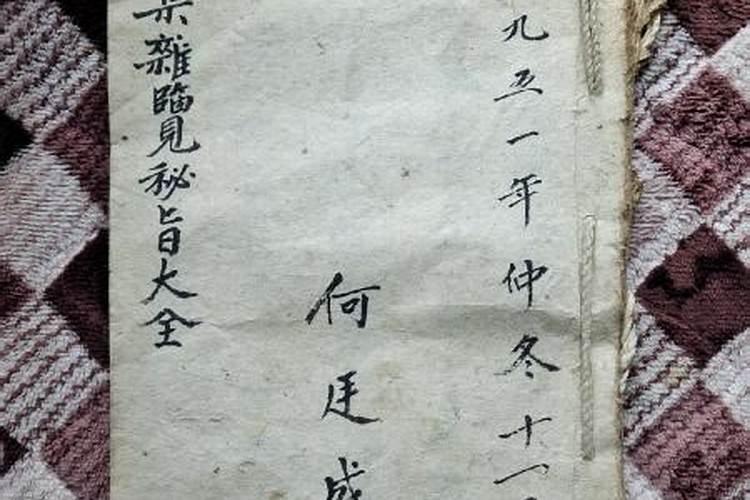 九五一年仲冬十一
何廷成
雜覽秘旨大全